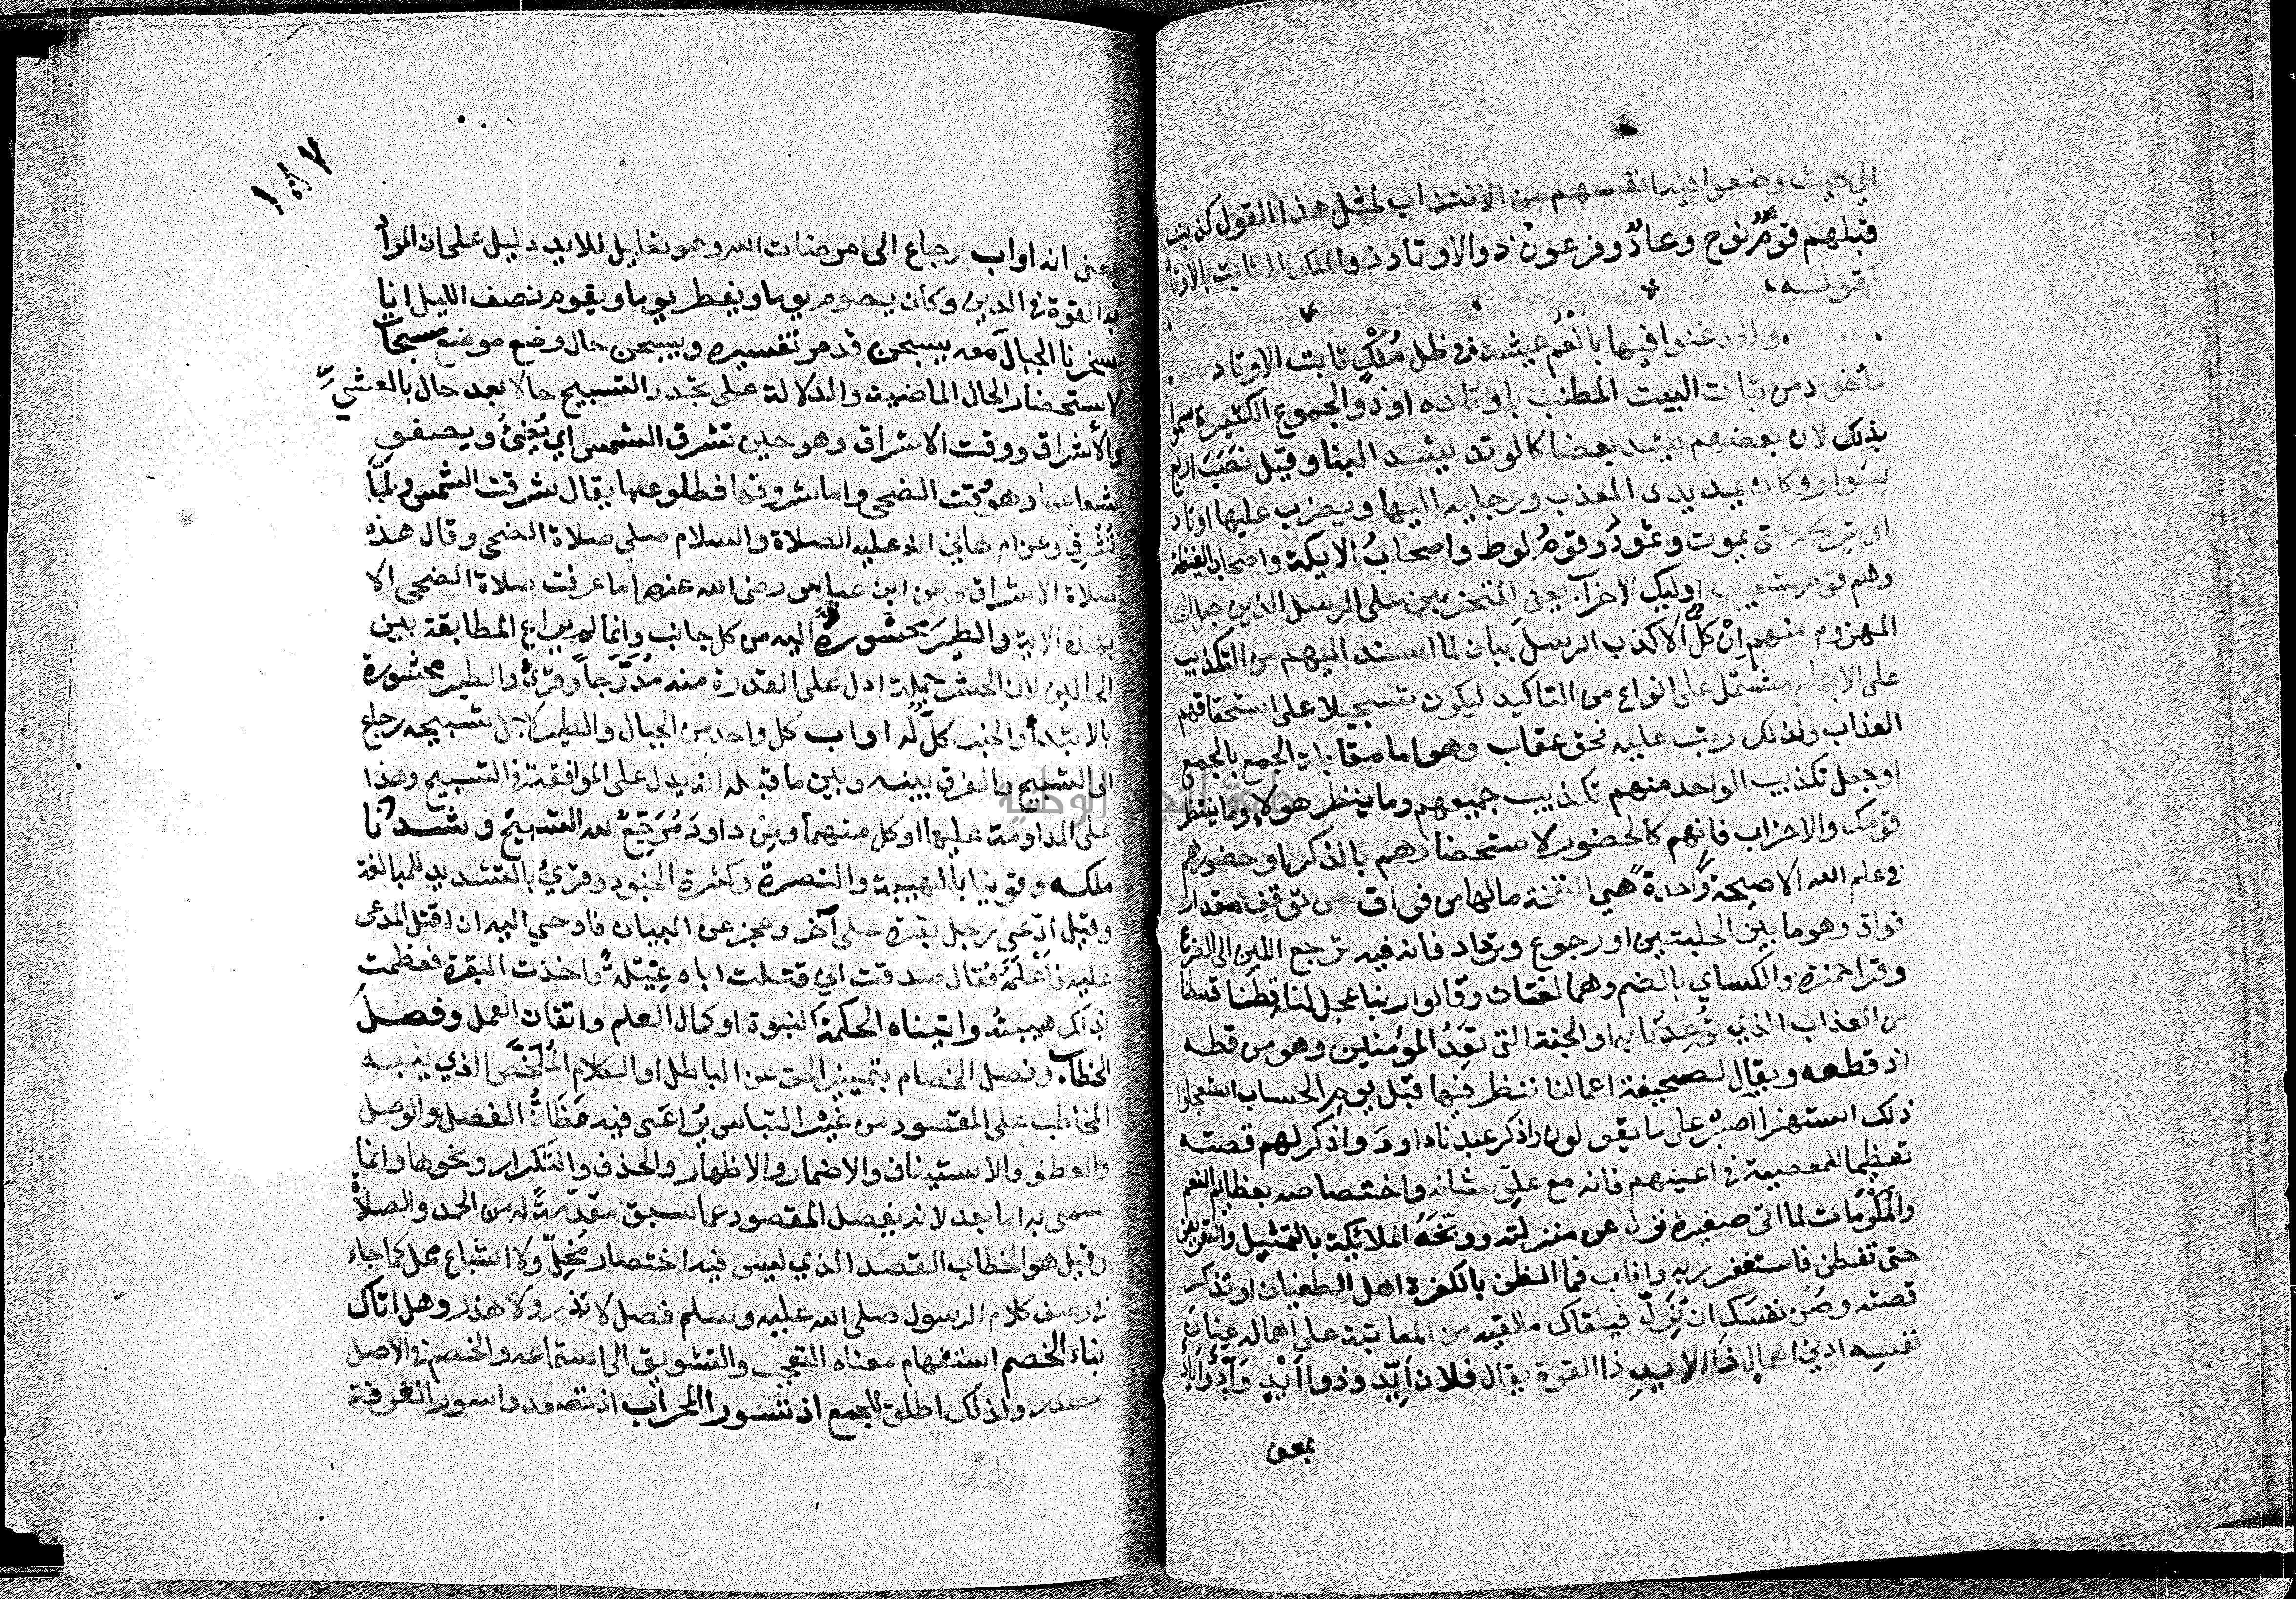 الي حيث وضعوا فيه انفسهم من الانتداب لمثل هذا القول كذبت
قبلهم قوم نوح وعاد وفرعون ذو الاوتاد ذو الملك الثابت بالاوتاد
كقوله
ولقد غنوا فيها بانعم عيشة في ظل ملك ثابت الاوتاد
ماخوذ من ثبات البيت المطنب باوتاده او ذو الجموع الكثيرة سموا
بذلك لان بعضهم يشد بعضا كالوتد يشد البنا وقيل نصب اربع
سوار وكان يمد يدى المعذب ورجليه اليها ويضرب عليها اوتاد
او يتركه حتى يموت وثمود وقوم لوط واصحاب الايكة واصحاب الغيضة
وهم قوم شعيب اوليك الاحزاب يعني المتحزبين على الرسل الذين جعل الجند
المهزوم منهم ان كل الا كذب الرسل بيان لما اسند اليهم من التكذيب
على الابهام مشتمل على انواع من التاكيد ليكون تسجيلا على استحقاقهم
العذاب ولذلك رتب عليه فحق عقاب وهو اما مقابلة الجمع بالجمع
او جعل تكذيب الواحد منهم تكذيب جميعهم وما ينظر هولاء وما ينتظر
قومك والاحزاب فانهم كالحضور لاستحضارهم بالذكر او حضورهم
في علم الله الا صيحة واحدة هي النفخة ما لها من فواق من توقف مقدار
فواق وهو ما بين الحلبتين او رجوع وترداد فانه فيه ترجع اللبن الى الضرع
وقرا حمزة والكساي بالضم وهما لغتان وقالوا ربنا عجل لنا قطنا قسطنا
من العذاب الذي توعدنا به او الجنة التي تعد المؤمنين وهو من قطه
اذ قطعه ويقال لصحيفة اعمالنا ننظر فيها قبل يوم الحساب استعجلوا
ذلك استهزا اصبر على ما يقولون واذكر عبدنا داود واذكر لهم قصته
تعظيما للمعصية في اعينهم فانه مع علو شانه واختصاصه بعظايم النعم
والمكرمات لما اتى صغيرة نزل عن منزلته ووبخه الملائكة بالتمثيل والتعريض
حتى تفطن فاستغفر ربه واناب فما الظن بالكفرة اهل الطغيان او تذكر
قصته وصن نفسك ان تزل فيلقاك ما لقيه من المعاتبة على اهماله عنان
نفسه ادنى اهمال ذا الايد ذا القوة يقال فلان ايد وذو ايد وآد واياد
بمعنى
١٨٧
بمعنى انه اواب رجاع الى مرضات الله وهو تعليل للايد دليل على ان المراد
به القوة في الدين وكان يصوم يوما ويفطر يوما ويقوم نصف الليل انا
سخرنا الجبال معه يسبحن قد مر تفسيره ويسبحن حال وضع موضع مسبحات
لاستحضار الحال الماضية والدلالة على تجدد التسبيح حالا بعد حال بالعشي
والاشراق ووقت الاشراق وهو حين تشرق الشمس اي تضيئ ويصفو
شعاعها وهو وقت الضحى واما شروقها فطلوعها يقال شرقت الشمس ولما
تشرق وعن ام هاني انه عليه الصلاة والسلام صلى صلاة الضحى وقال هذه
صلاة الاشراق وعن ابن عباس رضى الله عنهما ما عرفت صلاة الضحى الا
بهذه الاية والطير محشورة اليه من كل جانب وانما لم يراع المطابقة بين
الحالين لان الحشر جملة ادل على القدرة منه مدرجا وقرئ والطير محشورة
بالابتدا والخبر كل له اواب كل واحد من الجبال والطير لاجل تسبيحه رجاع
الى التسبيح والفرق بينه وبين ما قبله انه يدل على الموافقة في التسبيح وهذا
على المداومة عليها او كل منهما ومن داود مرجع لله التسبيح وشددنا
ملكه وقويناه بالهيبة والنصرة وكثرة الجنود وقرئ بالتشديد للمبالغة
وقيل ادعى رجل بقرة على آخر وعجز عن البيان فاوحي اليه ان اقتل المدعى
عليه فاعلمه فقال صدقت اني قتلت اباه غيلة واخذت البقرة فعظمت
بذلك هيبته واتيناه الحكمة النبوة او كمال العلم واتقان العمل وفصل
الخطاب وفصل الخصام بتمييز الحق عن الباطل او الكلام الملخص الذي ينبه
المخاطب على المقصود من غير التباس يراعى فيه مظان الفصل والوصل
والعطف والاستيناف والاضمار والاظهار والحذف والتكرار ونحوها وانما
سمى به اما بعد لانه يفصل المقصود عما سبق مقدمة له من الحمد والصلاة
وقيل هو الخطاب القصد الذي ليس فيه اختصار مخل ولا اشباع ممل كما جاء
في وصف كلام الرسول صلى الله عليه وسلم فصل لا نذر ولا هذر وهل اتاك
نباء الخصم استفهام معناه التعجب والتشويق الى استماعه والخصم في الاصل
مصدر ولذلك اطلق للجمع اذ تسوروا المحراب اذ تصعدوا سور الغرفة